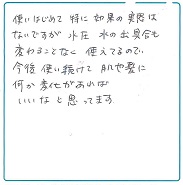 使いはじめて 特に 効果の実感は
ないですが 水圧 水の出具合も
変わることなく 使えてるので、
今後 使い続けて 肌や髪に
何か変化があれば
いいなと思ってます。